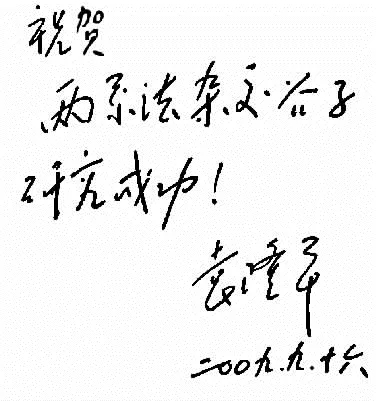 祝贺
两系法杂交谷子
研究成功！
袁隆平
二〇〇九.九.十六